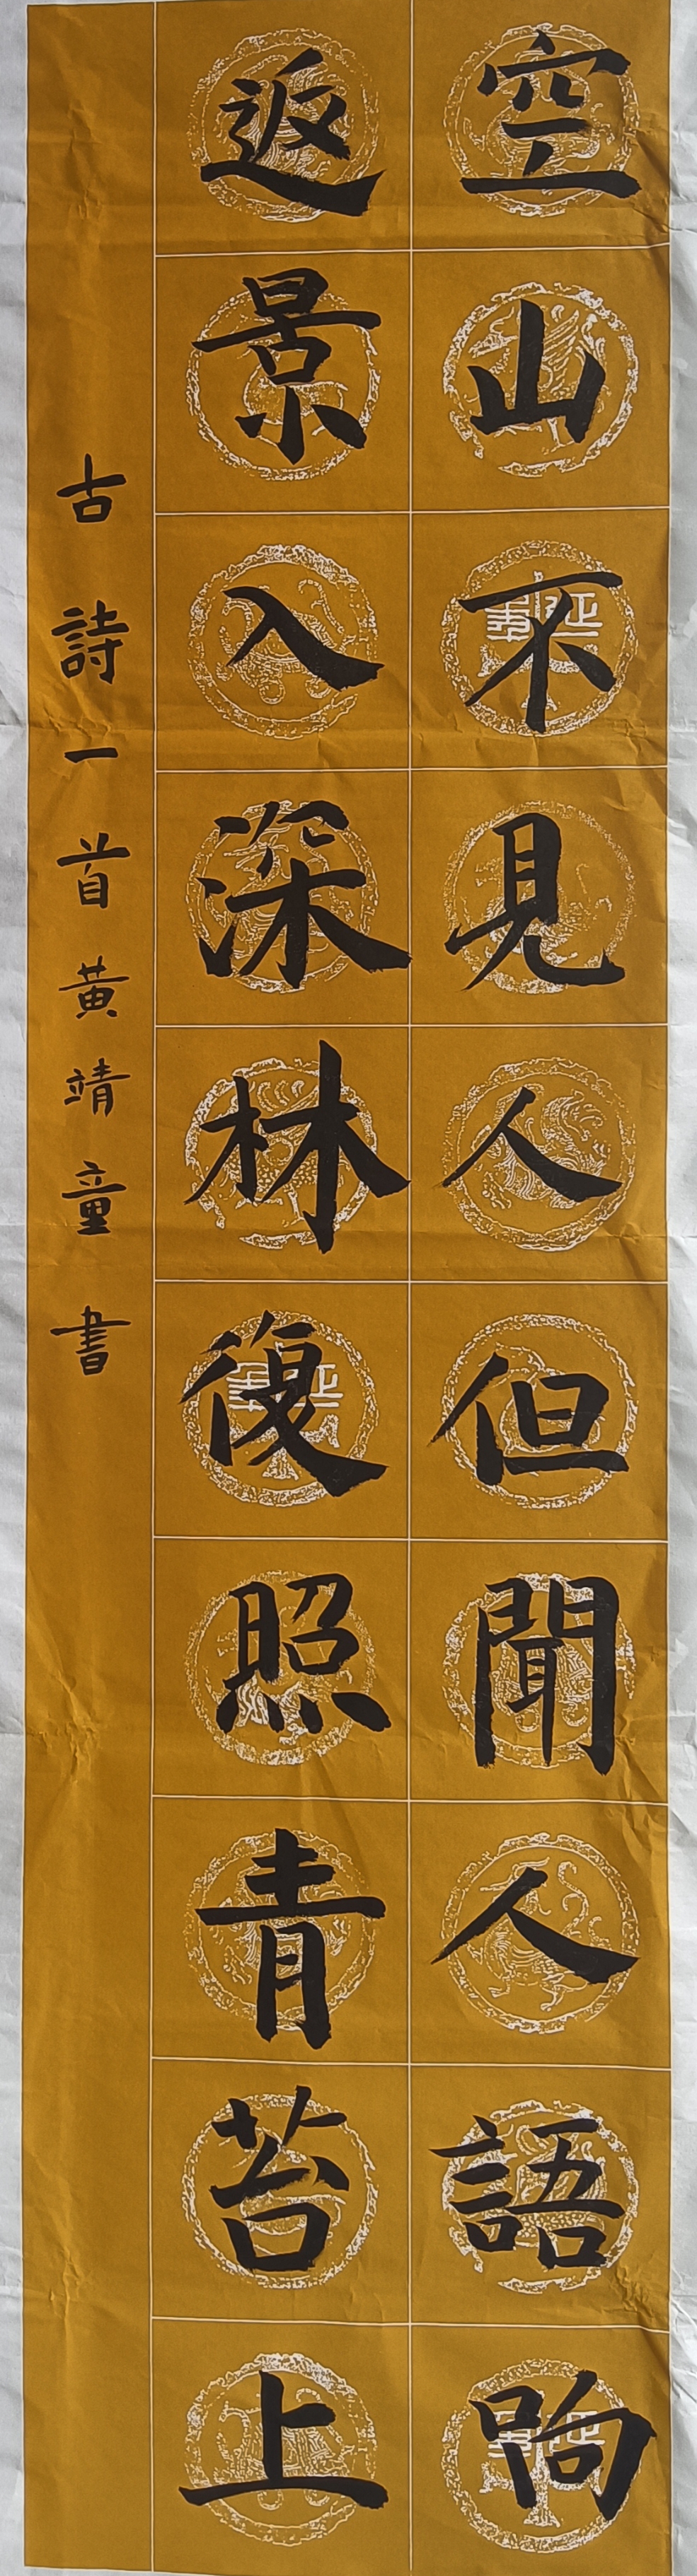 空山不見人但聞人語响
返景入深林復照青苔上
古詩一首黄靖童書